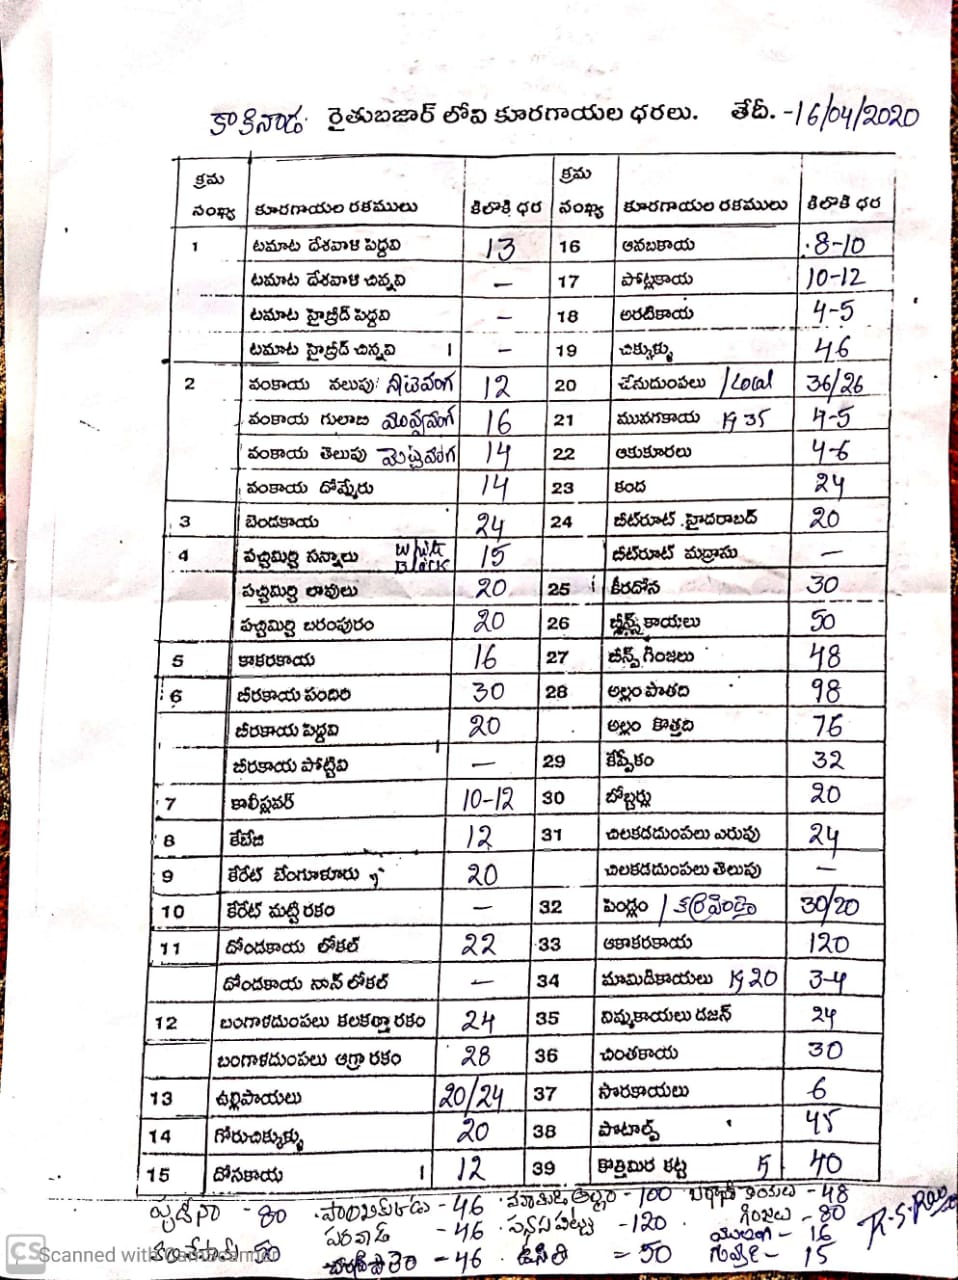 కాకినాడ రైతుబజార్ లోని కూరగాయల ధరలు. తేదీ.-16/04/2020
క్రమ సంఖ్య కూరగాయల రకములు కిలోకి ధర క్రమ సంఖ్య కూరగాయల రకములు కిలోకి ధర
1 టమాట దేశవాళి పెద్దవి 13 16 ఆనబకాయ 8-10
టమాట దేశవాళి చిన్నవి — 17 పోట్లకాయ 10-12
టమాట హైబ్రీడ్ పెద్దవి — 18 అరటికాయ 4-5
టమాట హైబ్రీడ్ చిన్నవి — 19 చిక్కుళ్ళు 46
2 వంకాయ నలుపు 12 20 చేనుదుంపలు /Local 36/26
వంకాయ గులాబి 16 21 మునగకాయ Kg 35 4-5
వంకాయ తెలుపు 14 22 ఆకుకూరలు 4-6
వంకాయ దోమ్మేరు 14 23 కంద 24
3 బెండకాయ 24 24 బీట్‌రూట్ .హైదరాబద్ 20
4 పచ్చిమిర్చి సన్నాలు White Black 15 బీట్‌రూట్ మద్రాసు —
పచ్చిమిర్చి లావులు 20 25 కీరదోస 30
పచ్చిమిర్చి బరంపురం 20 26 బీన్స్ కాయలు 50
5 కాకరకాయ 16 27 బీన్స్ గింజలు 48
6 బీరకాయ పందిరి 30 28 అల్లం పాతది 98
బీరకాయ పెద్దవి 20 అల్లం కొత్తది 76
బీరకాయ పోట్టివి — 29 కేప్సికం 32
7 కాలీఫ్లవర్ 10-12 30 బోబ్బర్లు 20
8 కేబేజి 12 31 చిలకడదుంపలు ఎరుపు 24
9 కేరేట్ బేంగూళూరు 20 చిలకడదుంపలు తెలుపు —
10 కేరేట్ మట్టి రకం — 32 పెండ్లం / కర్రపెండ్లం 30/20
11 దోండకాయ లోకల్ 22 33 ఆకాకరకాయ 120
దోండకాయ నాన్ లోకల్ — 34 మామిడికాయలు Kg 20 3-4
12 బంగాళదుంపలు కలకత్తా రకం 24 35 నిమ్మకాయలు డజన్ 24
బంగాళదుంపలు ఆగ్రా రకం 28 36 చింతకాయ 30
13 ఉల్లిపాయలు 20/24 37 సొరకాయలు 6
14 గోరుచిక్కుళ్ళు 20 38 పోటాల్స్ 45
15 దోసకాయ 12 39 కొత్తిమిర కట్ట Kg 40
పుదీనా - 80 - 46 మామిడి అల్లం - 100 - 48
- 46 పనస పొట్టు - 120 గింజలు - 80
50 - 46 ఉసిరి = 50 - 16
- 15
CS Scanned with CamScanner